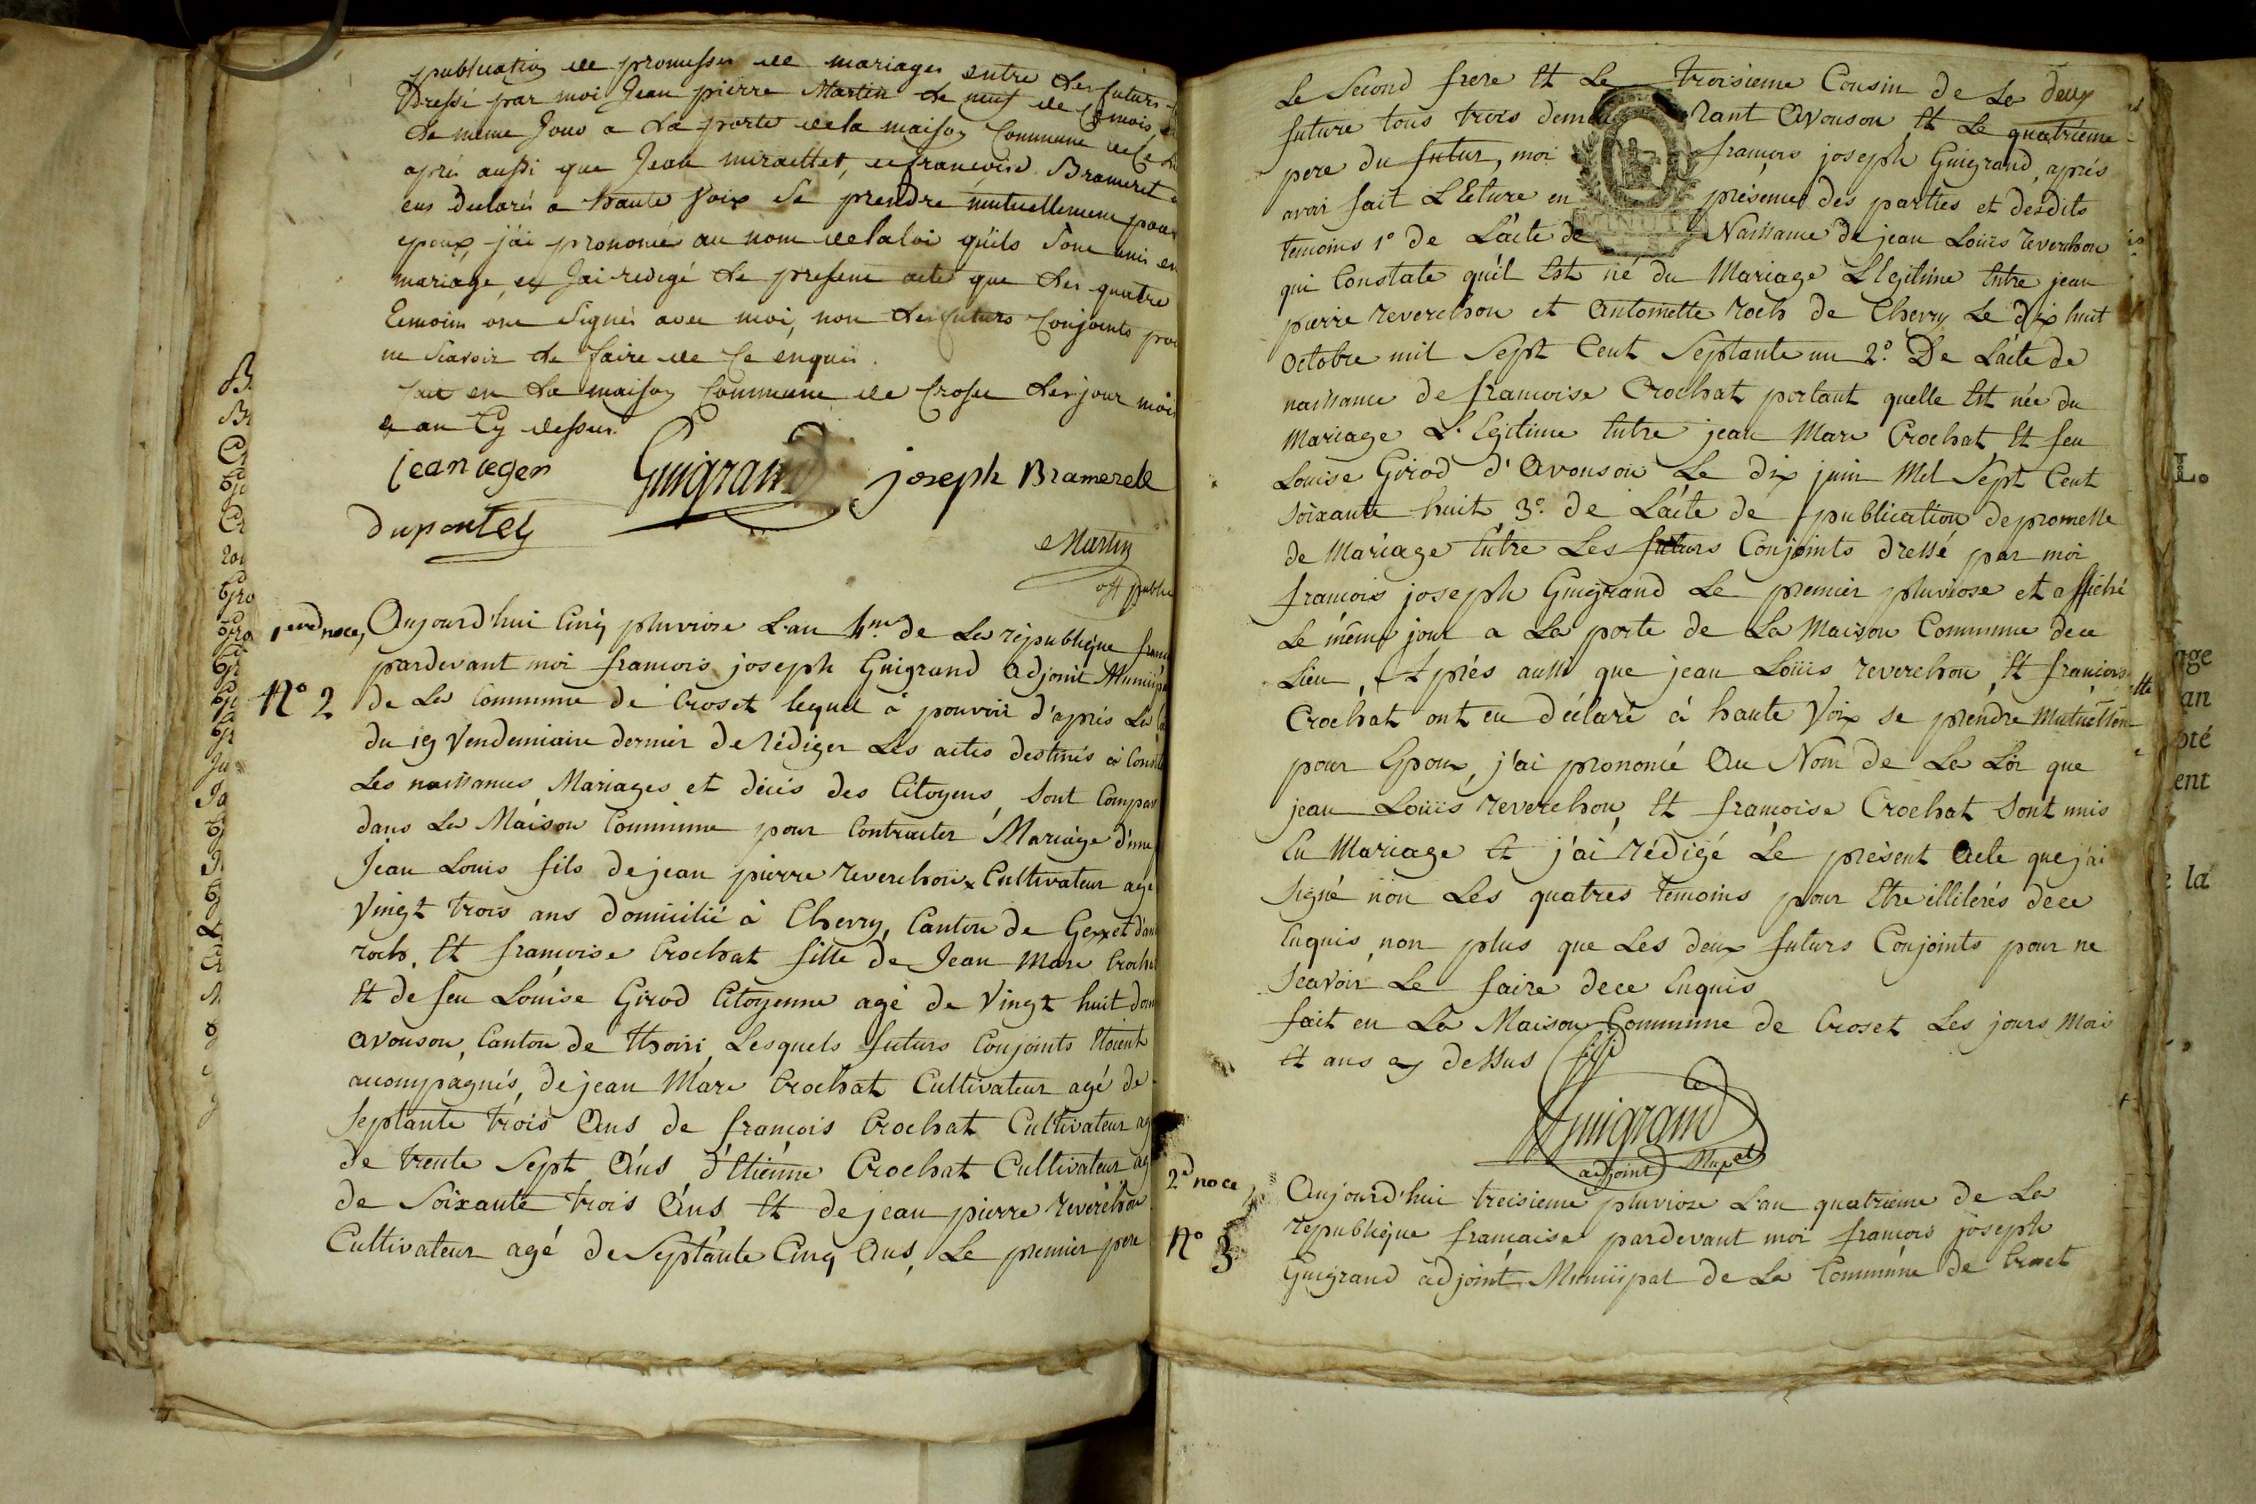 publication de promesses de mariages entre les futurs
Dressé par moi Jean pierre Martin le neuf de Ce mois
le meme Jour a la porte de la maison Commune de Ce
aprés aussi que Jean miraillet, et francoise Brameret
eus Declarés a haute Voix Se prendre mutuellement pour
epoux, j'ai prononcé au nom de la loi qu'ils Sont unis en
mariage, et J'ai redigé le present acte que les quatre
temoins ont Signés avec moi, non les futurs Conjoints pour
ne Scavoir le faire de Ce enquis.
fait en la maison Commune de Crosu les jour mois
& an Cy dessus.
jean leger Guigrand joseph Bramerel
duponteLy
Martin
off public
1ere noce,
N° 2
Aujourd'hui Cinq pluviose L'an 4me de La république franc
pardevant moi francois joseph Guigrand Adjoint Municipa
de La Commune de Croset lequel á pouvoir d'aprés La
du 19 Vendemiaire dernier de rédiger Les actes destinés à Const
Les naissances, Mariages et décés des Citoyens, Sont Compar
dans La Maison Commune pour Contracter Mariage d'une
Jean Louis fils de jean pierre reverchon Cultivateur agé
Vingt trois ans domicilié à Chevry, Canton de Gex et d'an
roch, Et francoise Crochat fille de Jean Marc Croch
Et de feu Louise Girod Citoyenne agé de Vingt huit dom
avouson, Canton de Thoiri, Lesquels futurs Conjoints Etoient
acompagnés, de jean Marc Crochat Cultivateur agé de
Septante trois Ans de francois Crochat Cultivateur ag
de trente Sept Ans, d'Etienne Crochat Cultivateur ag
de Soixante trois Ans Et de jean pierre reverchon
Cultivateur agé de Septante Cinq Ans, Le premier pere
Le Second frere Et Le troisieme Cousin de La deux
future tous trois demeurant Avouson Et Le quatrieme
pere du futur, moi francois joseph Guigrand, aprés
avoir fait LEcture en présence des parties et desdits
temoins 1° de Lacte de Naissance de jean Loüis reverchon
qui Constate qu'il Est né du Mariage Légitime Entre jean
pierre reverchon et Antoinette roch de Chevry Le dix huit
Octobre mil Sept Cent Septante un 2°. De Lacte de
naissance de francoise Crochat portant quelle Est née du
Mariage Légitime Entre jean Marc Crochat Et feu
Louise Girod d'Avouson Le dix juin Mil Sept Cent
Soixante huit 3°. de Lacte de publication de promesse
de Mariage Entre Les futurs Conjoints dressé par moi
francois joseph Guigrand Le premier pluviose et affiché
Le même jour a La porte de La Maison Commune dece
Lieu, Aprés aussi que jean Loüis reverchon Et francois
Crochat ont eu déclaré à haute Voix se prendre Mutuellem
pour Epoux, j'ai prononcé Au Nom de La Loi que
jean Loüis reverchon Et francoise Crochat Sont unis
En Mariage Et j'ai rédigé Le présent Acte que j'ai
Signé non Les quatres temoins pour Etre illiterés dece
Enquis, non plus que Les deux futurs Conjoints pour ne
Scavoir Le faire dece Enquis
fait en La Maison Commune de Croset Les jours Mois
Et ans cy dessus
Guigrand
adjoint Mupal
2d noce
N° 3
Aujourd'hui treisieme pluviose L'an quatrieme de La
republique francaise pardevant moi francois joseph
Guigrand adjoint Municipal de La Commune de Croset